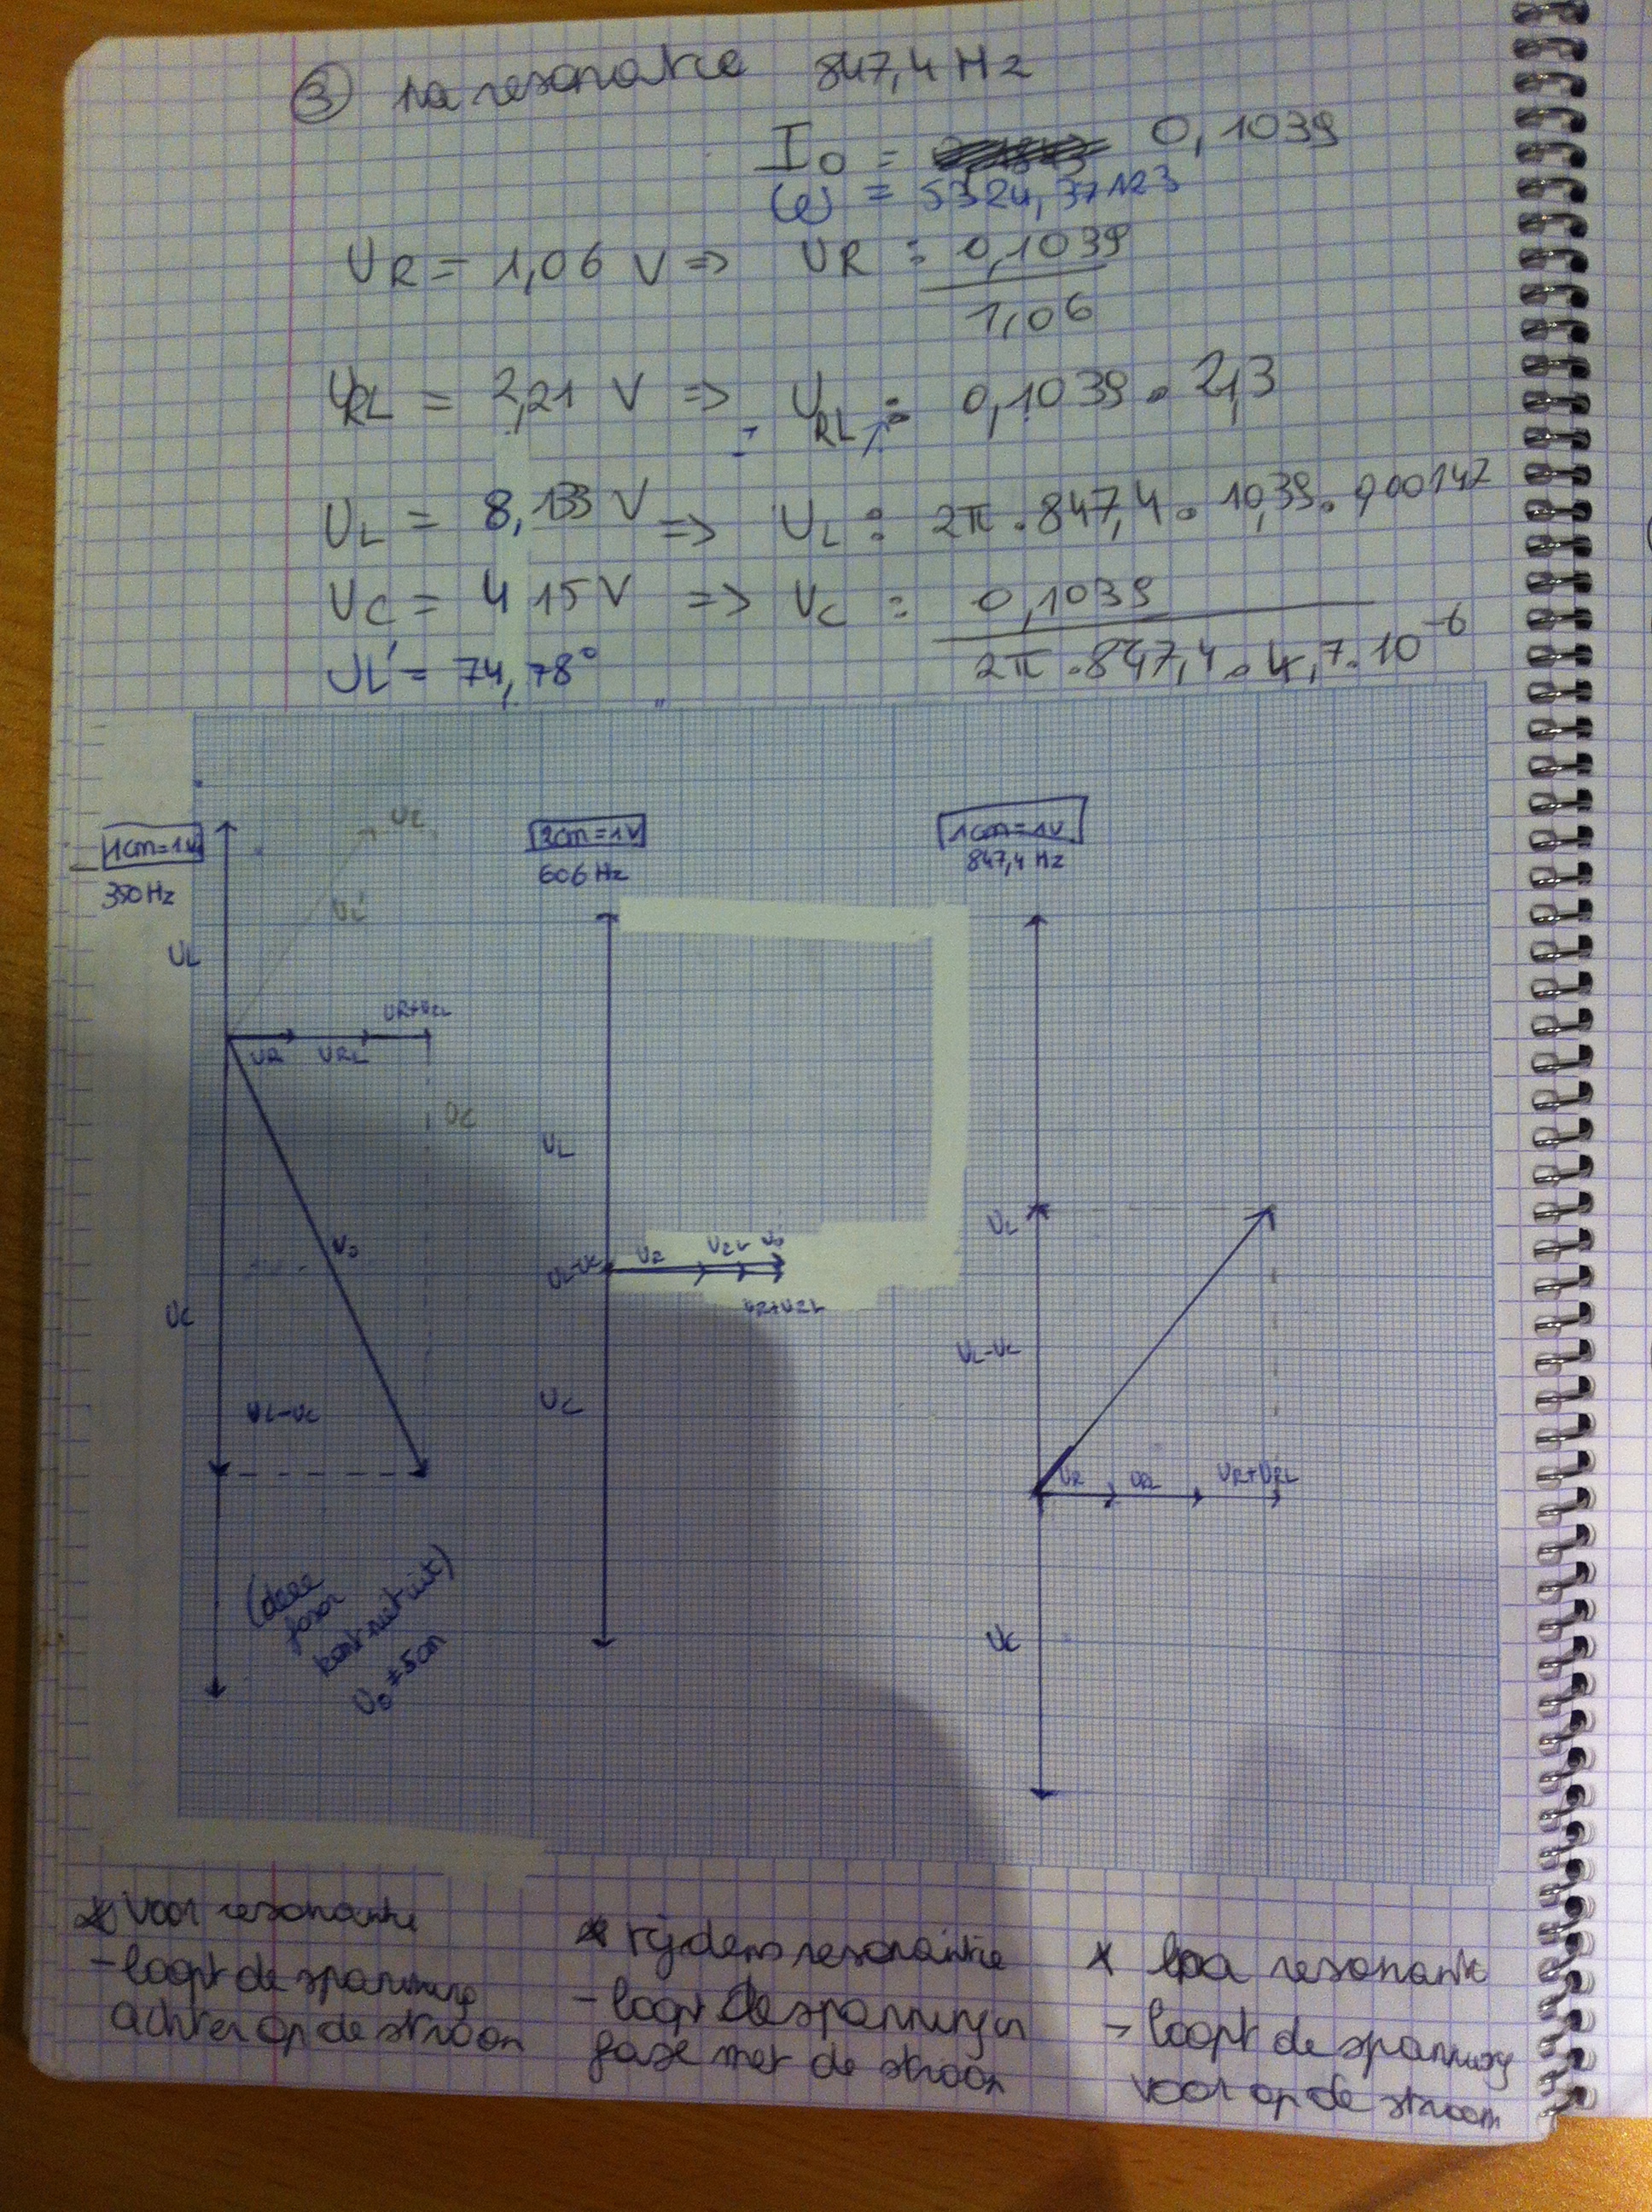 ③ na resonantie 847,4 Hz
I0 = 0,1039
ω = 5324,37123
UR = 1,06 V => UR : 0,1039 / 1,06
URL = 2,21 V => URL : 0,1039 . 21,3
UL = 8,133 V => UL : 2π . 847,4 . 10,39 . 0,00147
UC = 4,15 V => UC : 0,1039 / 2π . 847,4 . 4,7 . 10^-6
UL' = 74,78°
1cm=1V
350Hz
UL
UL
UL'
UR+URL
UR URL
UC
U0
UC
UL-UC
(deze fasor komt niet uit)
U0 ≠ 5cm
2cm=1V
606 Hz
UL
UL-UC
UR URL U0
UR+URL
UC
1cm=1V
847,4 Hz
UL
UL-UC
UR URL UR+URL
UC
* Voor resonantie
- loopt de spanning
achter op de stroom
* Tijdens resonantie
- loopt de spanning in
fase met de stroom
* Na resonantie
- loopt de spanning
voor op de stroom